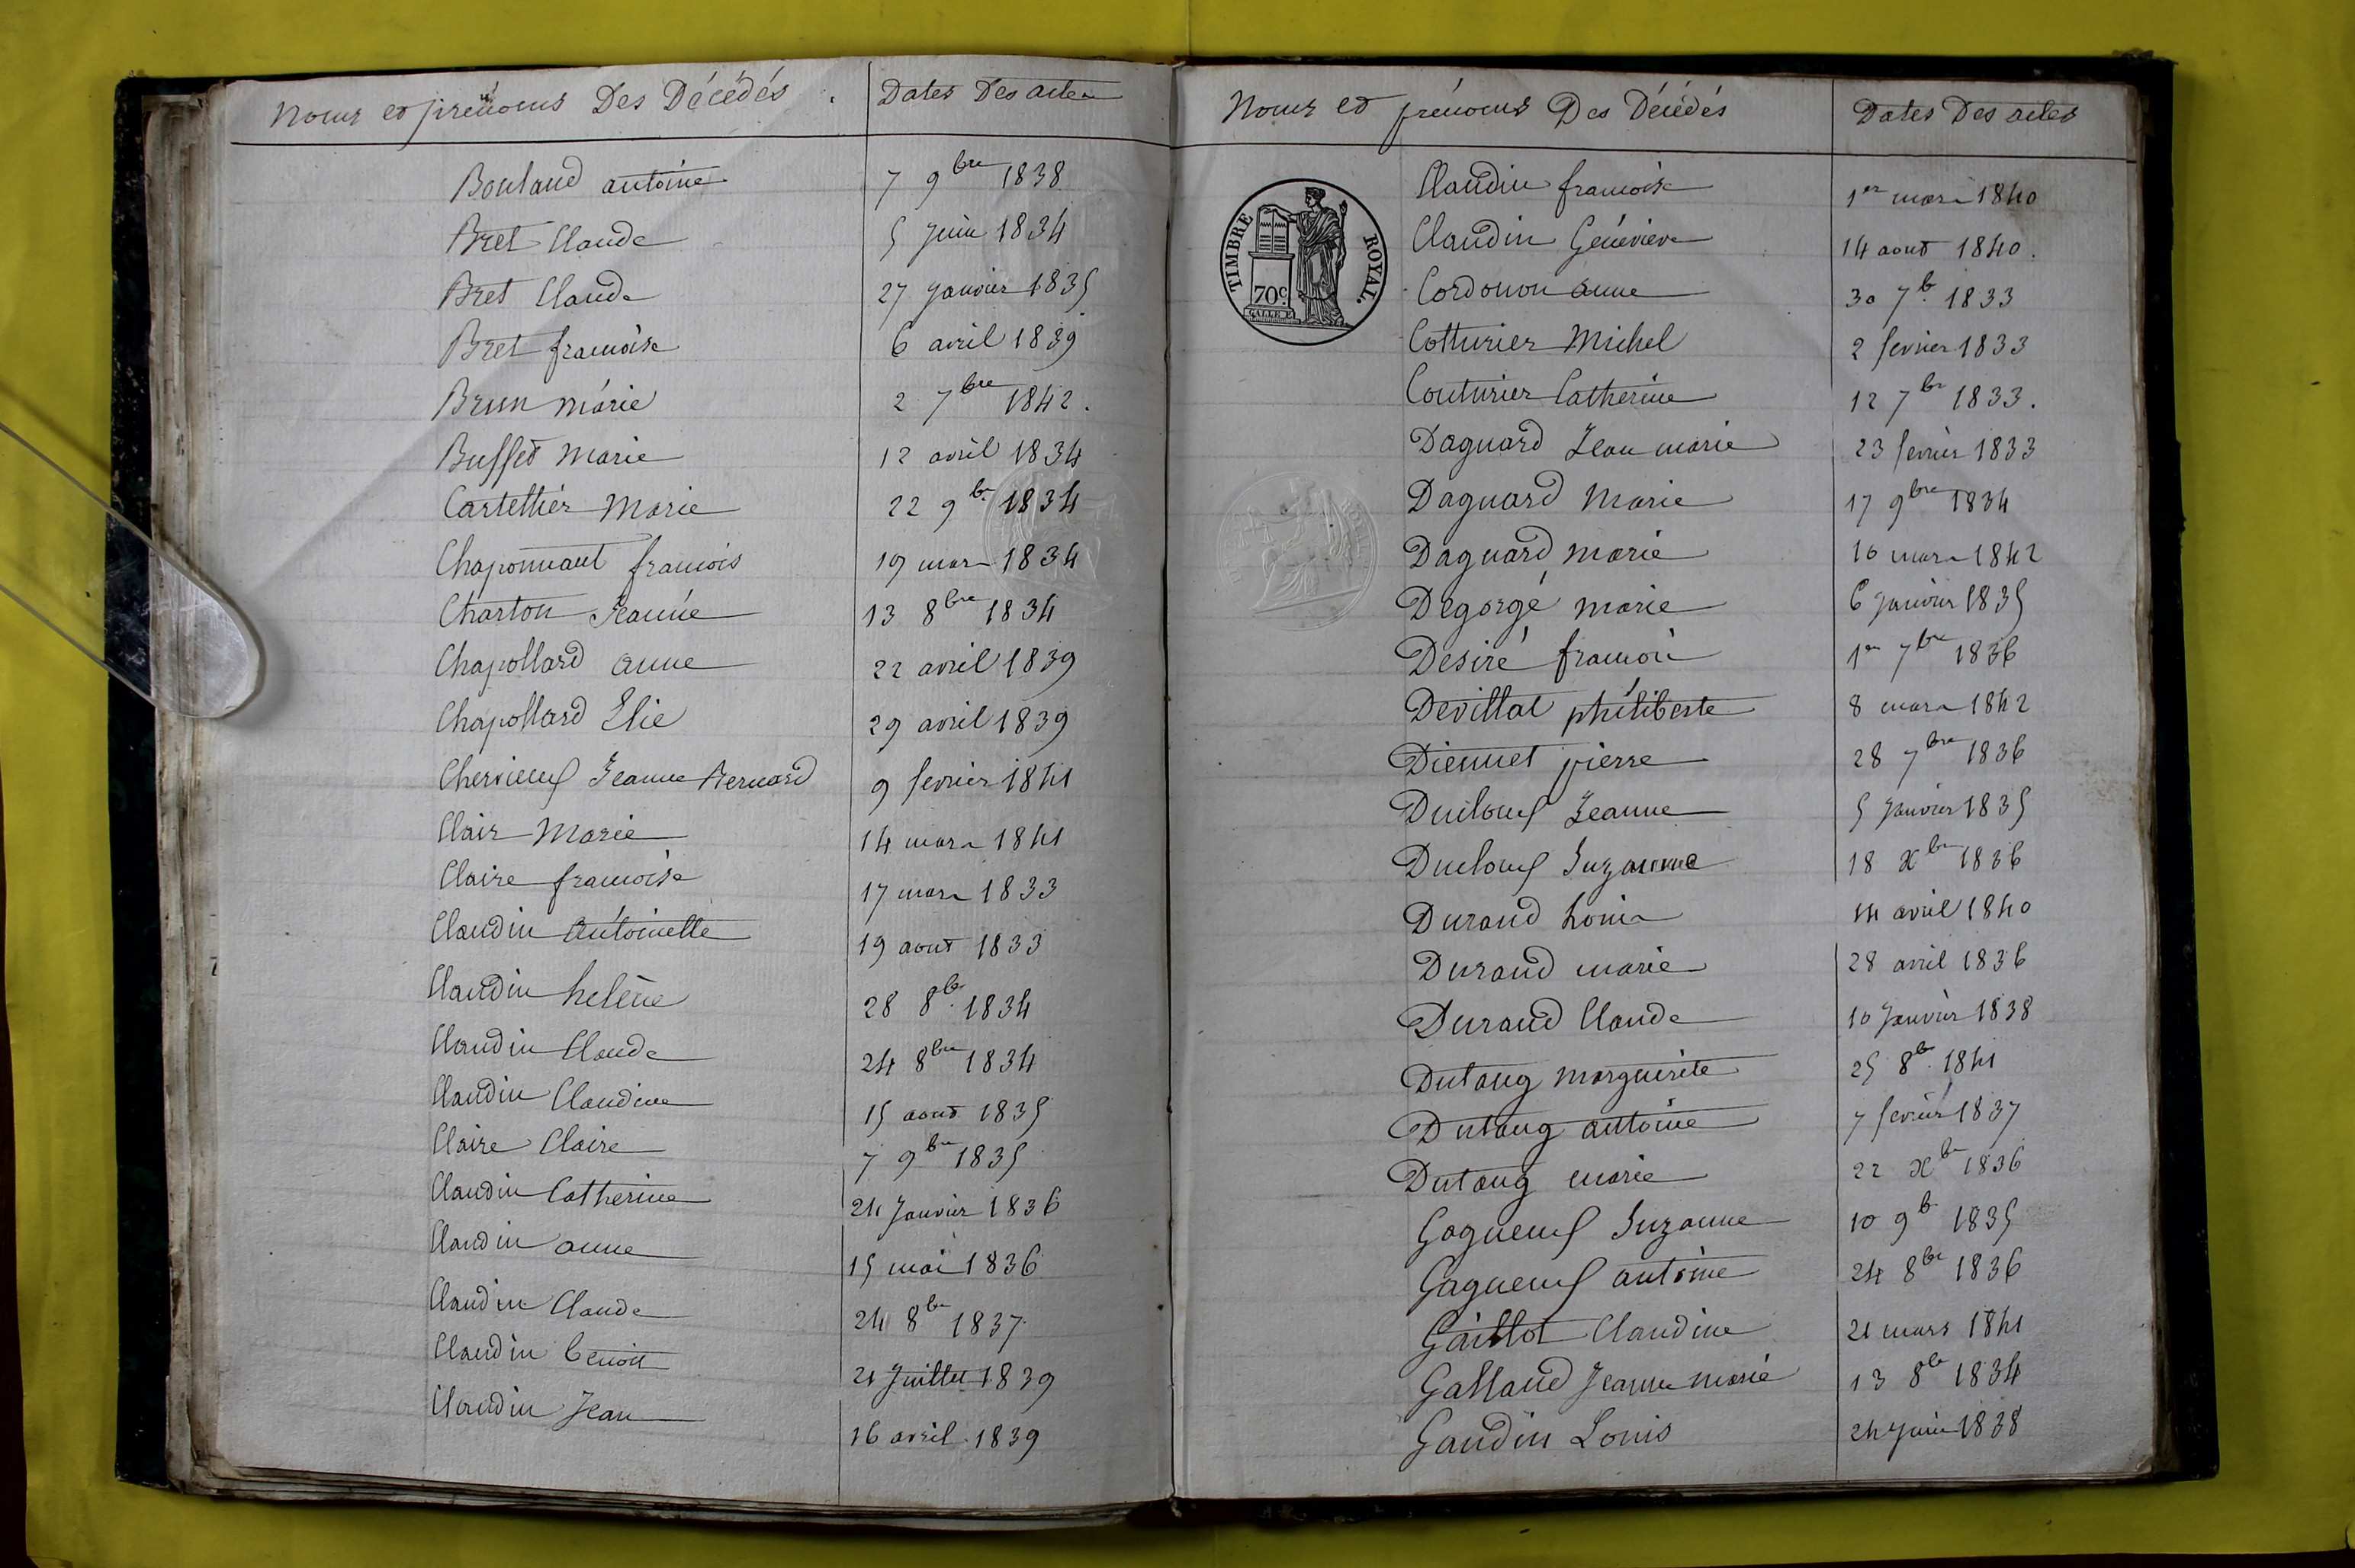 Noms et prénoms Des Décédés. Dates Des actes
Bouland antoine 7 9bre 1838
Bret Claude 5 Juin 1834
Bret Claude 27 Janvier 1835
Bret francoise 6 avril 1839
Brun Marie 2 7bre 1842.
Buffet Marie 12 avril 1834
Cartellier Marie 22 9bre 1834
Chaponnaut francois 19 mars 1834
Charton Jeanne 13 8bre 1834
Chapollard anne 22 avril 1839
Chapollard Elie 29 avril 1839
Chervieux Jeanne Bernard 9 fevrier 1841
Clair Marie 14 mars 1841
Claire francoise 17 mars 1833
Claudin Antoinette 19 aout 1833
Claudin helène 28 8b. 1834
Claudin Claude 24 8bre 1834
Claudin Claudine 15 aout 1835
Claire Claire 7 9bre 1835
Claudin Catherine 24 Janvier 1836
Claudin anne 15 mai 1836
Claudin Claude 24 8bre 1837
Claudin benoit 21 Juillet 1839
Claudin Jean 16 avril 1839
Noms et prénoms Des Décédés Dates Des actes
TIMBRE ROYAL.
70c.
Claudin francoise 1er mars 1840
Claudin Géneviève 14 aout 1840.
Cordonon anne 30 7b. 1833
Cotturier Michel 2 fevrier 1833
Couturier Catherine 12 7bre 1833.
Daguard Jean marie 23 fevrier 1833
Daguard Marie 17 9bre 1834
Daguard marie 16 mars 1842
Degorgé marie 6 Janvier 1835
Desiré francois 1er 7bre 1836
Devillat philiberte 8 mars 1842
Diennet pierre 28 7bre 1836
Duiloux Jeanne 5 Janvier 1835
Ducloux Suzanne 18 xbre 1836
Durand Louis 14 avril 1840
Durand marie 28 avril 1836
Durand Claude 10 Janvier 1838
Dutang marguerite 25 8b. 1841
Dutang antoine 7 fevrier 1837
Dutang marie 22 xbre 1836
Gagneux Suzanne 10 9b 1835
Gagneux antoine 24 8bre 1836
Gaillot Claudine 21 mars 1841
Galland Jeanne marie 13 8bre 1834
Gaudin Louis 24 Juin 1838